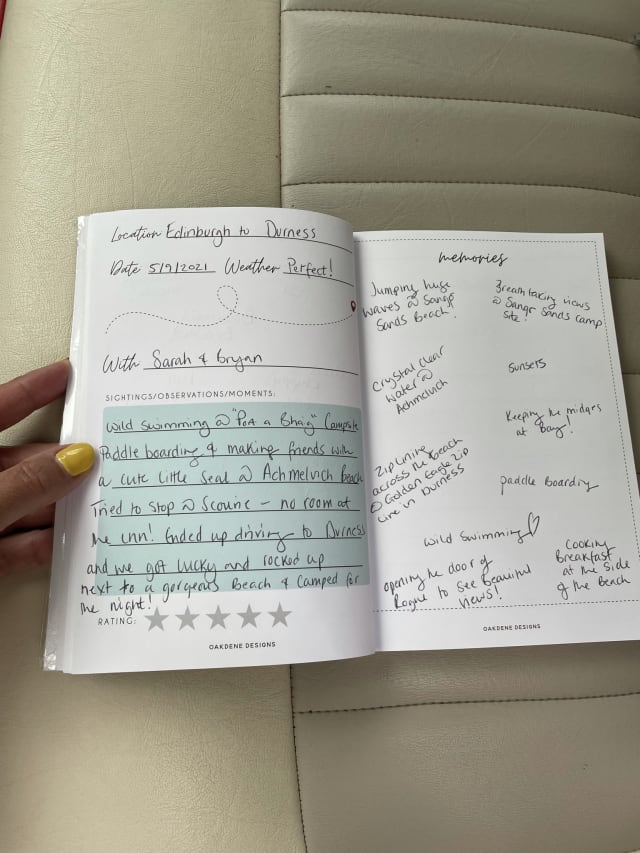 Location Edinburgh to Durness
Date 5/9/2021 Weather Perfect!
With Sarah & Bryan
SIGHTINGS/OBSERVATIONS/MOMENTS:
Wild swimming @ "Port a Bhaig" Campsite
Paddle boarding & making friends with
a cute little seal @ Achmelvich Beach
Tried to stop @ Scourie - no room at
the inn! Ended up driving to Durness
and we got lucky and rocked up
next to a gorgeous Beach & Camped for
the night!
RATING:
OAKDENE DESIGNS
memories
Jumping huge
waves @ Sango
Sands Beach!
Breathtaking views
@ Sango Sands camp
site!
Crystal clear
water @
Achmelvich
sunsets
Keeping the midges
at bay!
Ziplining
across the Beach
@ Golden Eagle Zip
Line in Durness
paddle Boarding
Wild Swimming
opening the door of
Rogue to see beautiful
views!
Cooking
Breakfast
at the side
of the Beach
OAKDENE DESIGNS